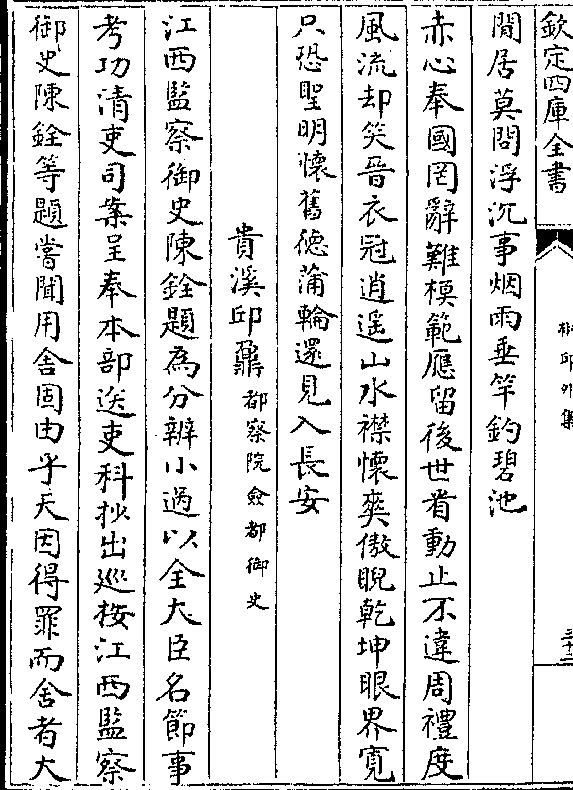 欽定四庫全書
外集
三十二
閒居莫問浮沉事烟雨垂竿釣碧池
赤心奉國罔辭難模範應留後世看動止不違周禮度
風流却笑晉衣冠逍遥山水襟懷爽傲睨乾坤眼界寛
只恐聖明懷舊徳蒲輪還見入長安
貴溪邱鼐都察院僉都御史
江西監察御史陳銓題為分辨小過以全大臣名節事
考功清吏司案呈奉本部送吏科抄出巡按江西監察
御史陳銓等題嘗聞用舍固由乎天因得罪而舍者大